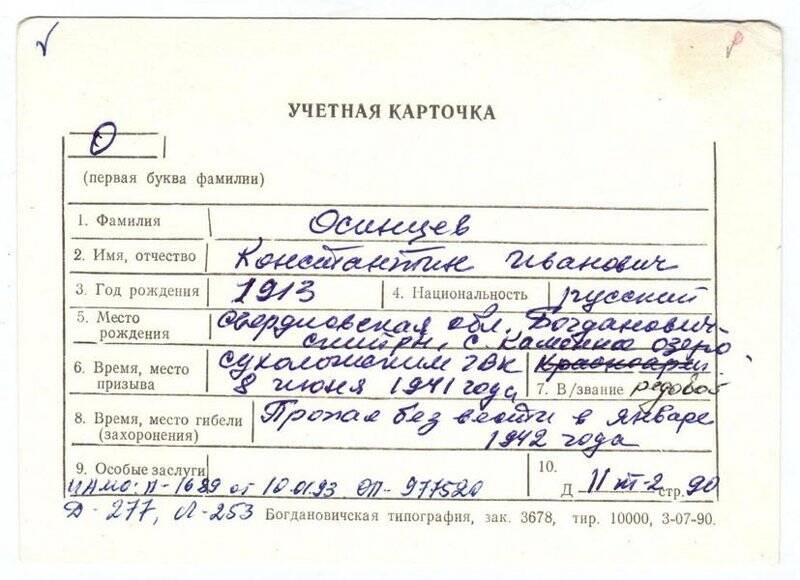 УЧЕТНАЯ КАРТОЧКА
О
(первая буква фамилии)
1. Фамилия Осинцев
2. Имя, отчество Константин Иванович
3. Год рождения 1913 4. Национальность русский
5. Место рождения Свердловская обл. Богданович-
ский рн, с. Каменно озеро
6. Время, место призыва Сухоложским ГВК
8 июня 1941 года
Красноарм.
7. В/звание рядовой
8. Время, место гибели (захоронения) Пропал без вести в январе
1942 года
9. Особые заслуги
10.
Д 11 т-2 стр. 90
ЦАМО: П-1689 от 10.01.93 ОП-977520
Д-277, Л-253
Богдановичская типография, зак. 3678, тир. 10000, 3-07-90.